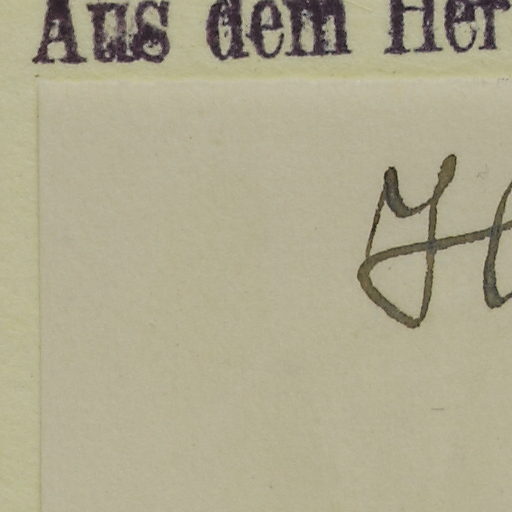 Aus dem Her